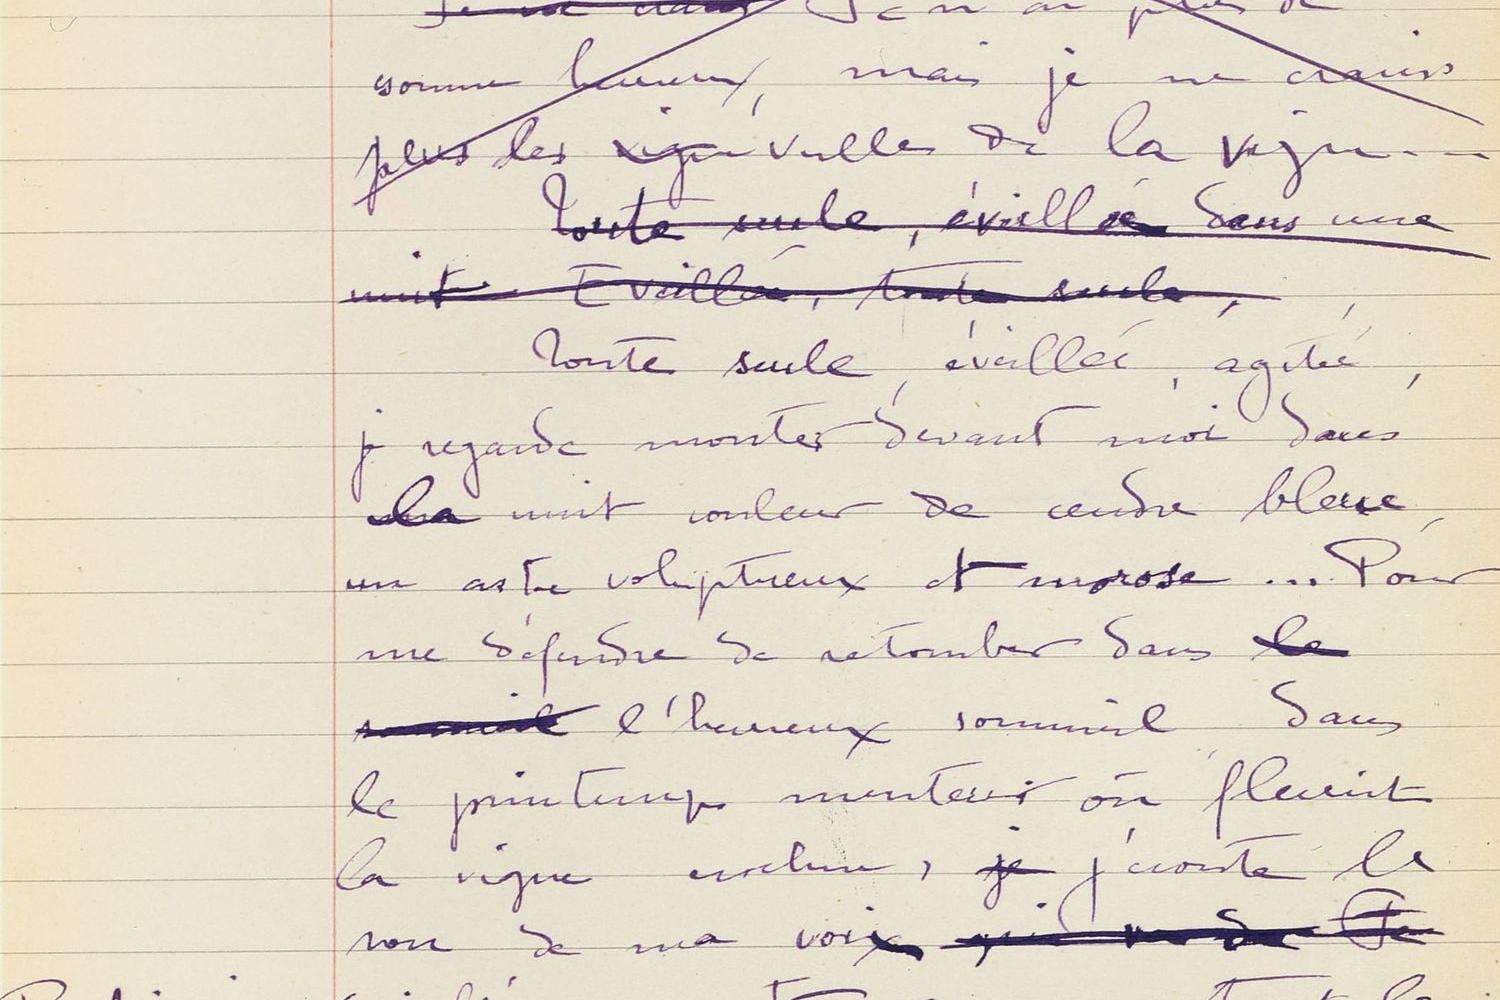 Je ne crains Je n'ai plus de
somme heureux, mais je ne crains
plus les vign vrilles de la vigne...
Toute seule, éveillée dans une
nuit Eveillée, toute seule,
Toute seule, éveillée, agitée,
je regarde monter devant moi dans
la nuit couleur de cendre bleue
un astre voluptueux et morose... Pour
me défendre de retomber dans le
sommeil l'heureux sommeil dans
le printemps menteur où fleurit
la vigne crochue, je j'écoute le
son de ma voix qui Je